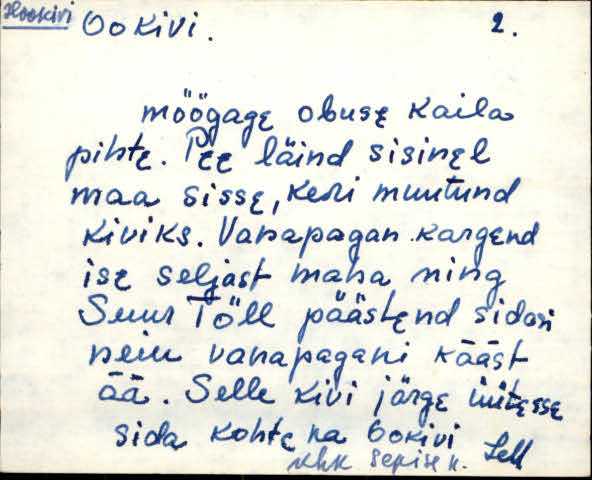 Hookivi Ookivi. 2.
möögage obuse kaila
pihte. Pee läind sisinel
maa sisse, keri muutund
kiviks. Vanapagan kargend
ise seljast maha ning
Suur Töll päästend sidasi
neiu vanapagani kääst
ää. Selle kivi järge üitesse
sida kohte ka Ookivi
khk